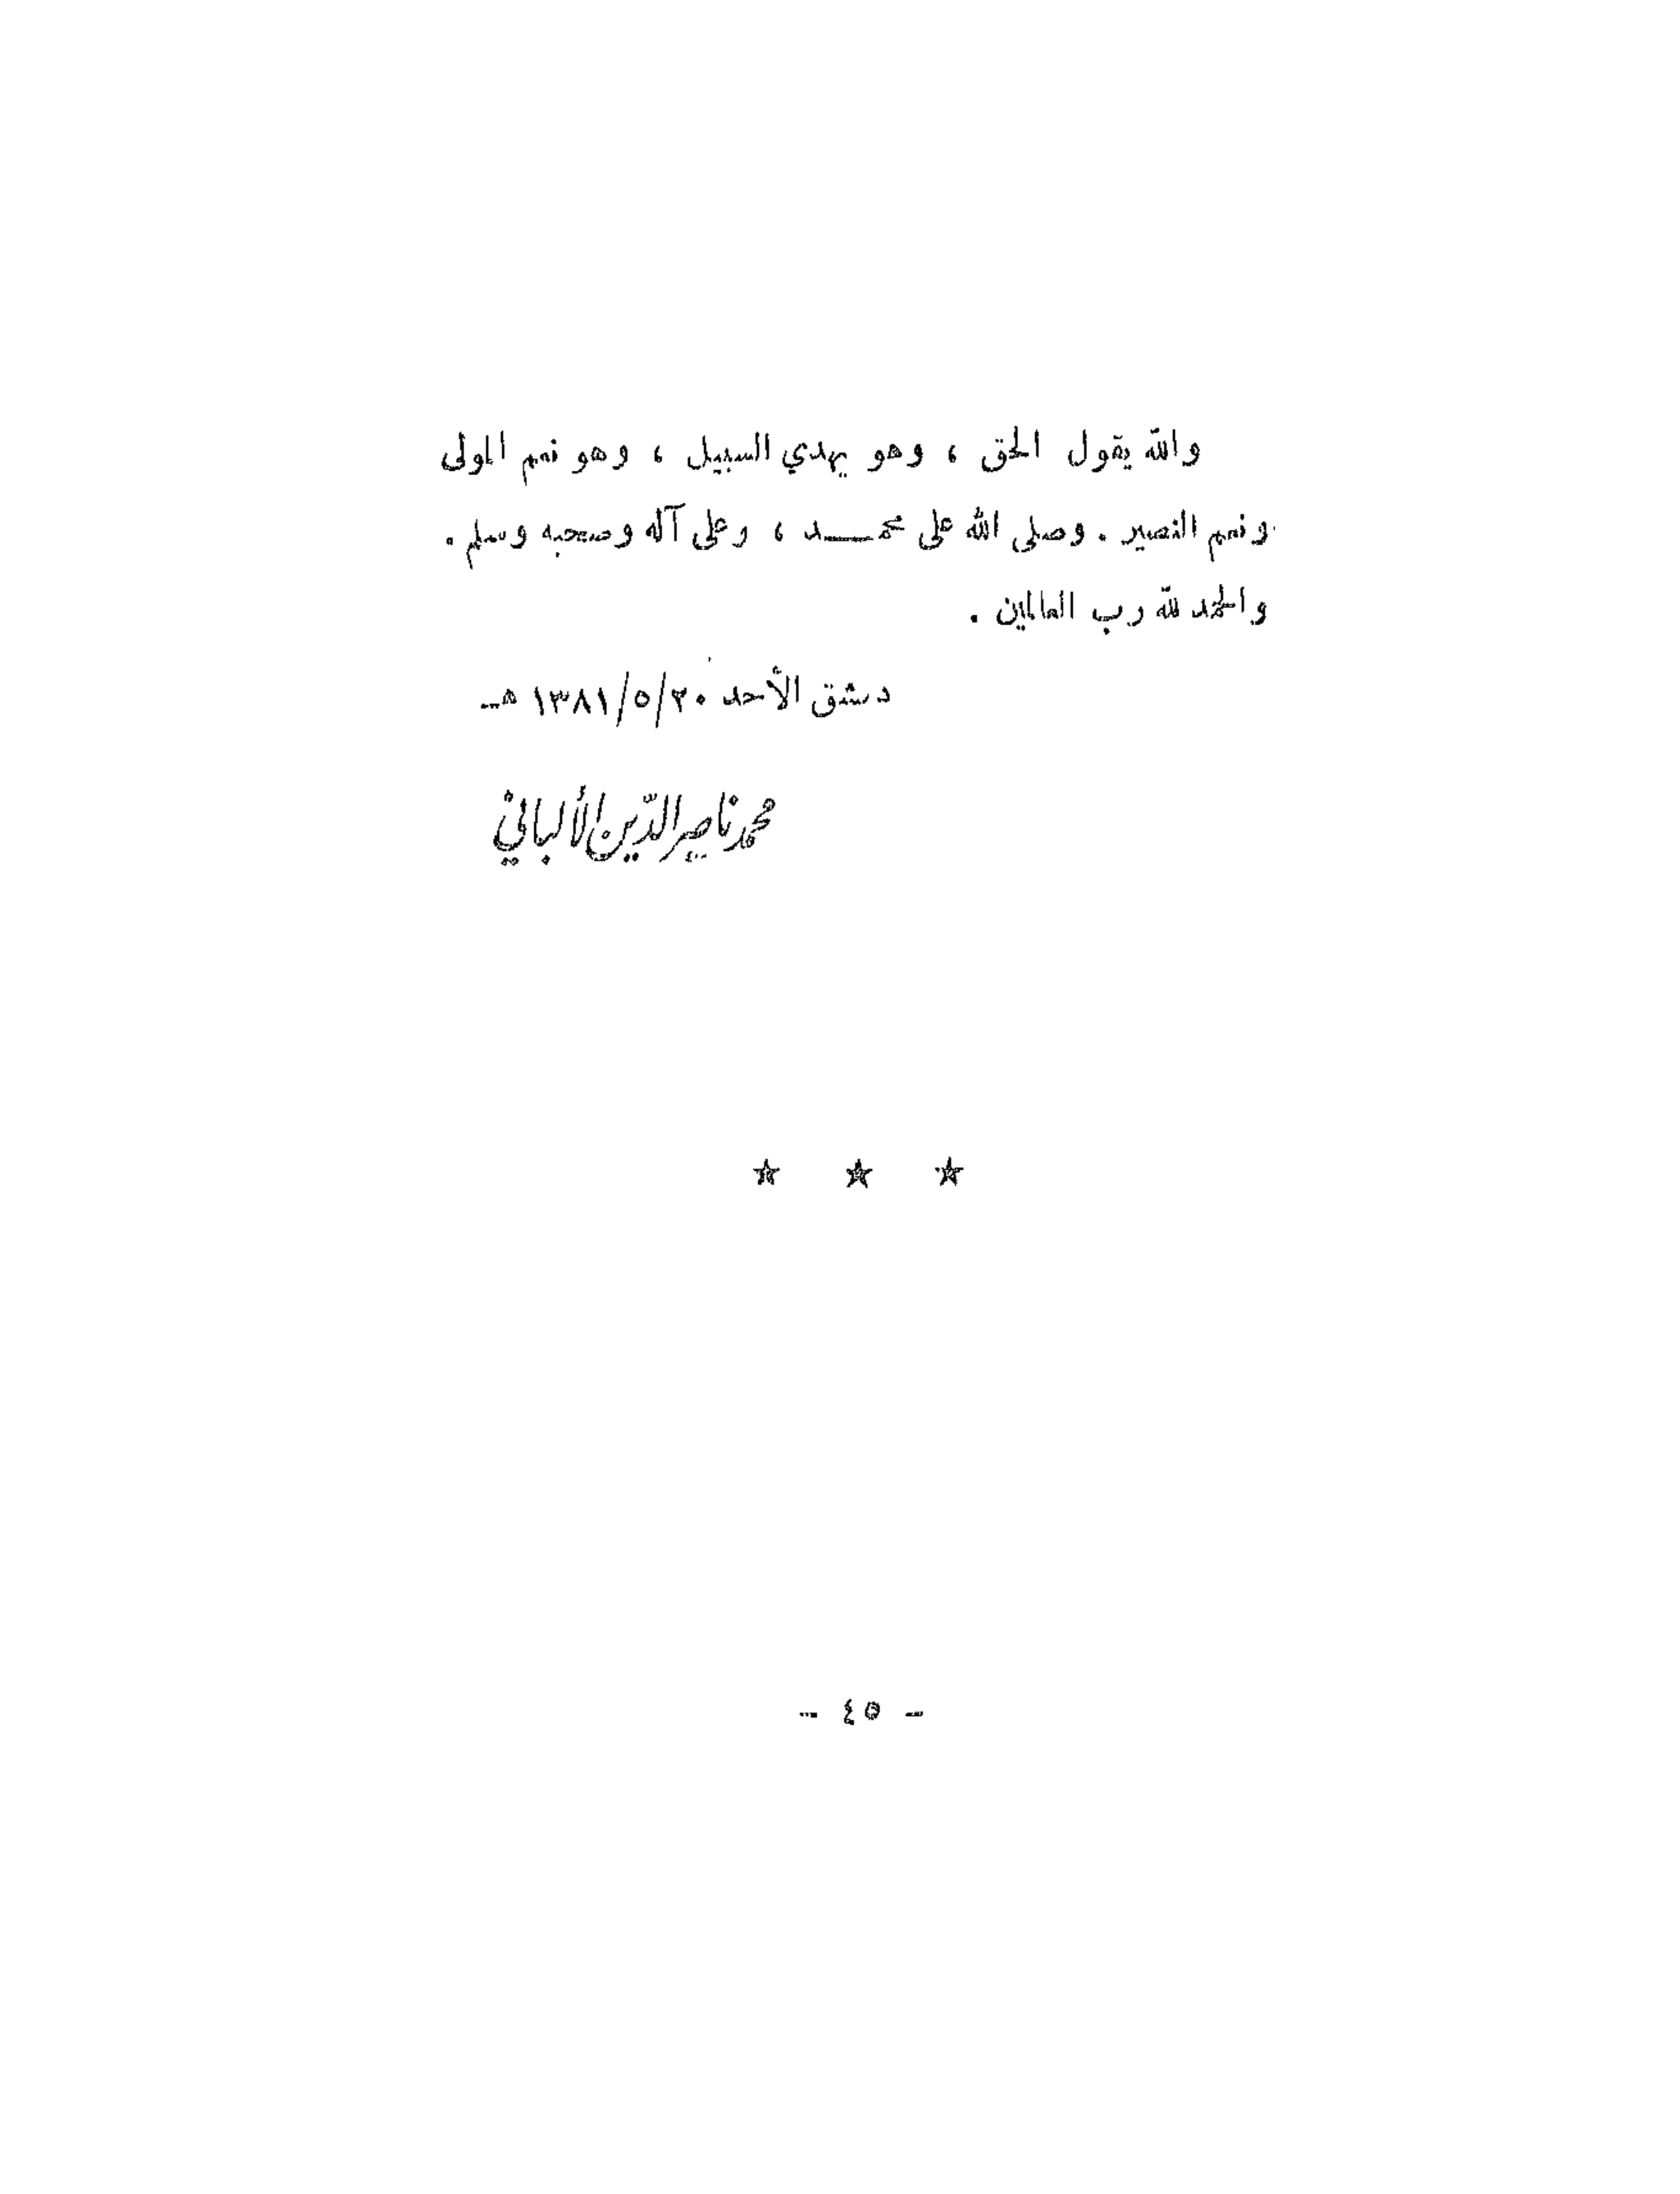 والله يقول الحق ، وهو يهدي السبيل ، وهو نعم المولى
ونعم النصير . وصلى الله على محمـــد ، وعلى آله وصحبه وسلم .
والحمد لله رب العالمين .
دمشق الأحد ٢٠/٥/١٣٨١ هـ
محمد ناصر الدّين الألباني
- ٤٥ -